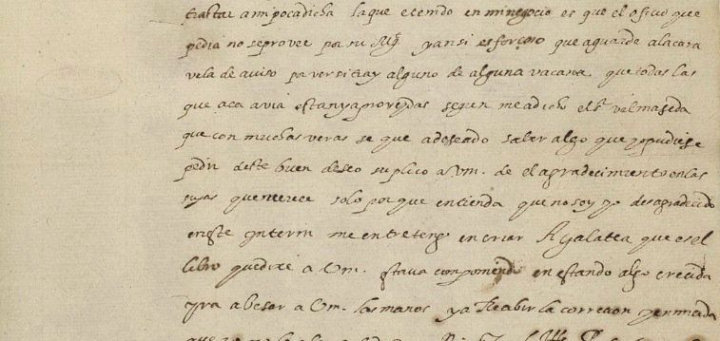 trastar a mi poca dicha la que e tenido en mi negocio es que el oficio que
pedia no se provee por su Mgd. y ansi es forçoso que aguarde a la cara
vela de aviso por ver si tray alguno de alguna vacante que todas las
que aca avia estan ya proveydas segun me a dicho el sr valmaseda
que con muchas veras se que a deseado saber algo que yo pudiese
pedir deste buen deseo suplico a Vm. de el agradecimiento en las
suyas que merece solo porque entienda que no soy yo desagradecido
en este ynterin me entretengo en criar A galatea que es el
libro que dixe a Vm. estava componiendo en estando algo crecida
yra a besar a Vm. las manos y a recibir la correcion y enmienda
que yo no le